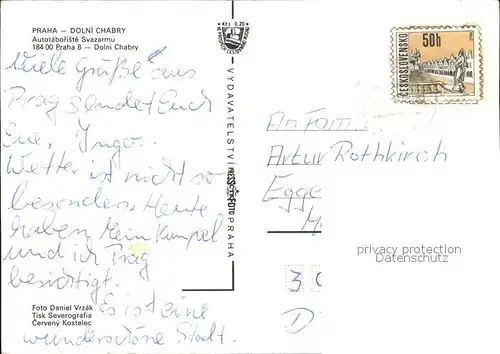 PRAHA — DOLNÍ CHABRY
Autotábořiště Svazarmu
184 00 Praha 8 — Dolní Chabry
Viele Grüße aus
Prag sendet Euch
Eue, Ingo.
Wetter ist nicht so
besonders. Heute
haben Mein Kumpel
und ich Prag
besichtigt.
Es ist eine
wunderschöne Stadt.
Foto Daniel Vrzák
Tisk Severografia
Červený Kostelec
Kčs 0,20
VYDAVATELSTVÍ PRESSFOTO PRAHA
ČESKOSLOVENSKO
50h
An Fam.
Artur Rothkirch
Egge
privacy protection
Datenschutz
3
D